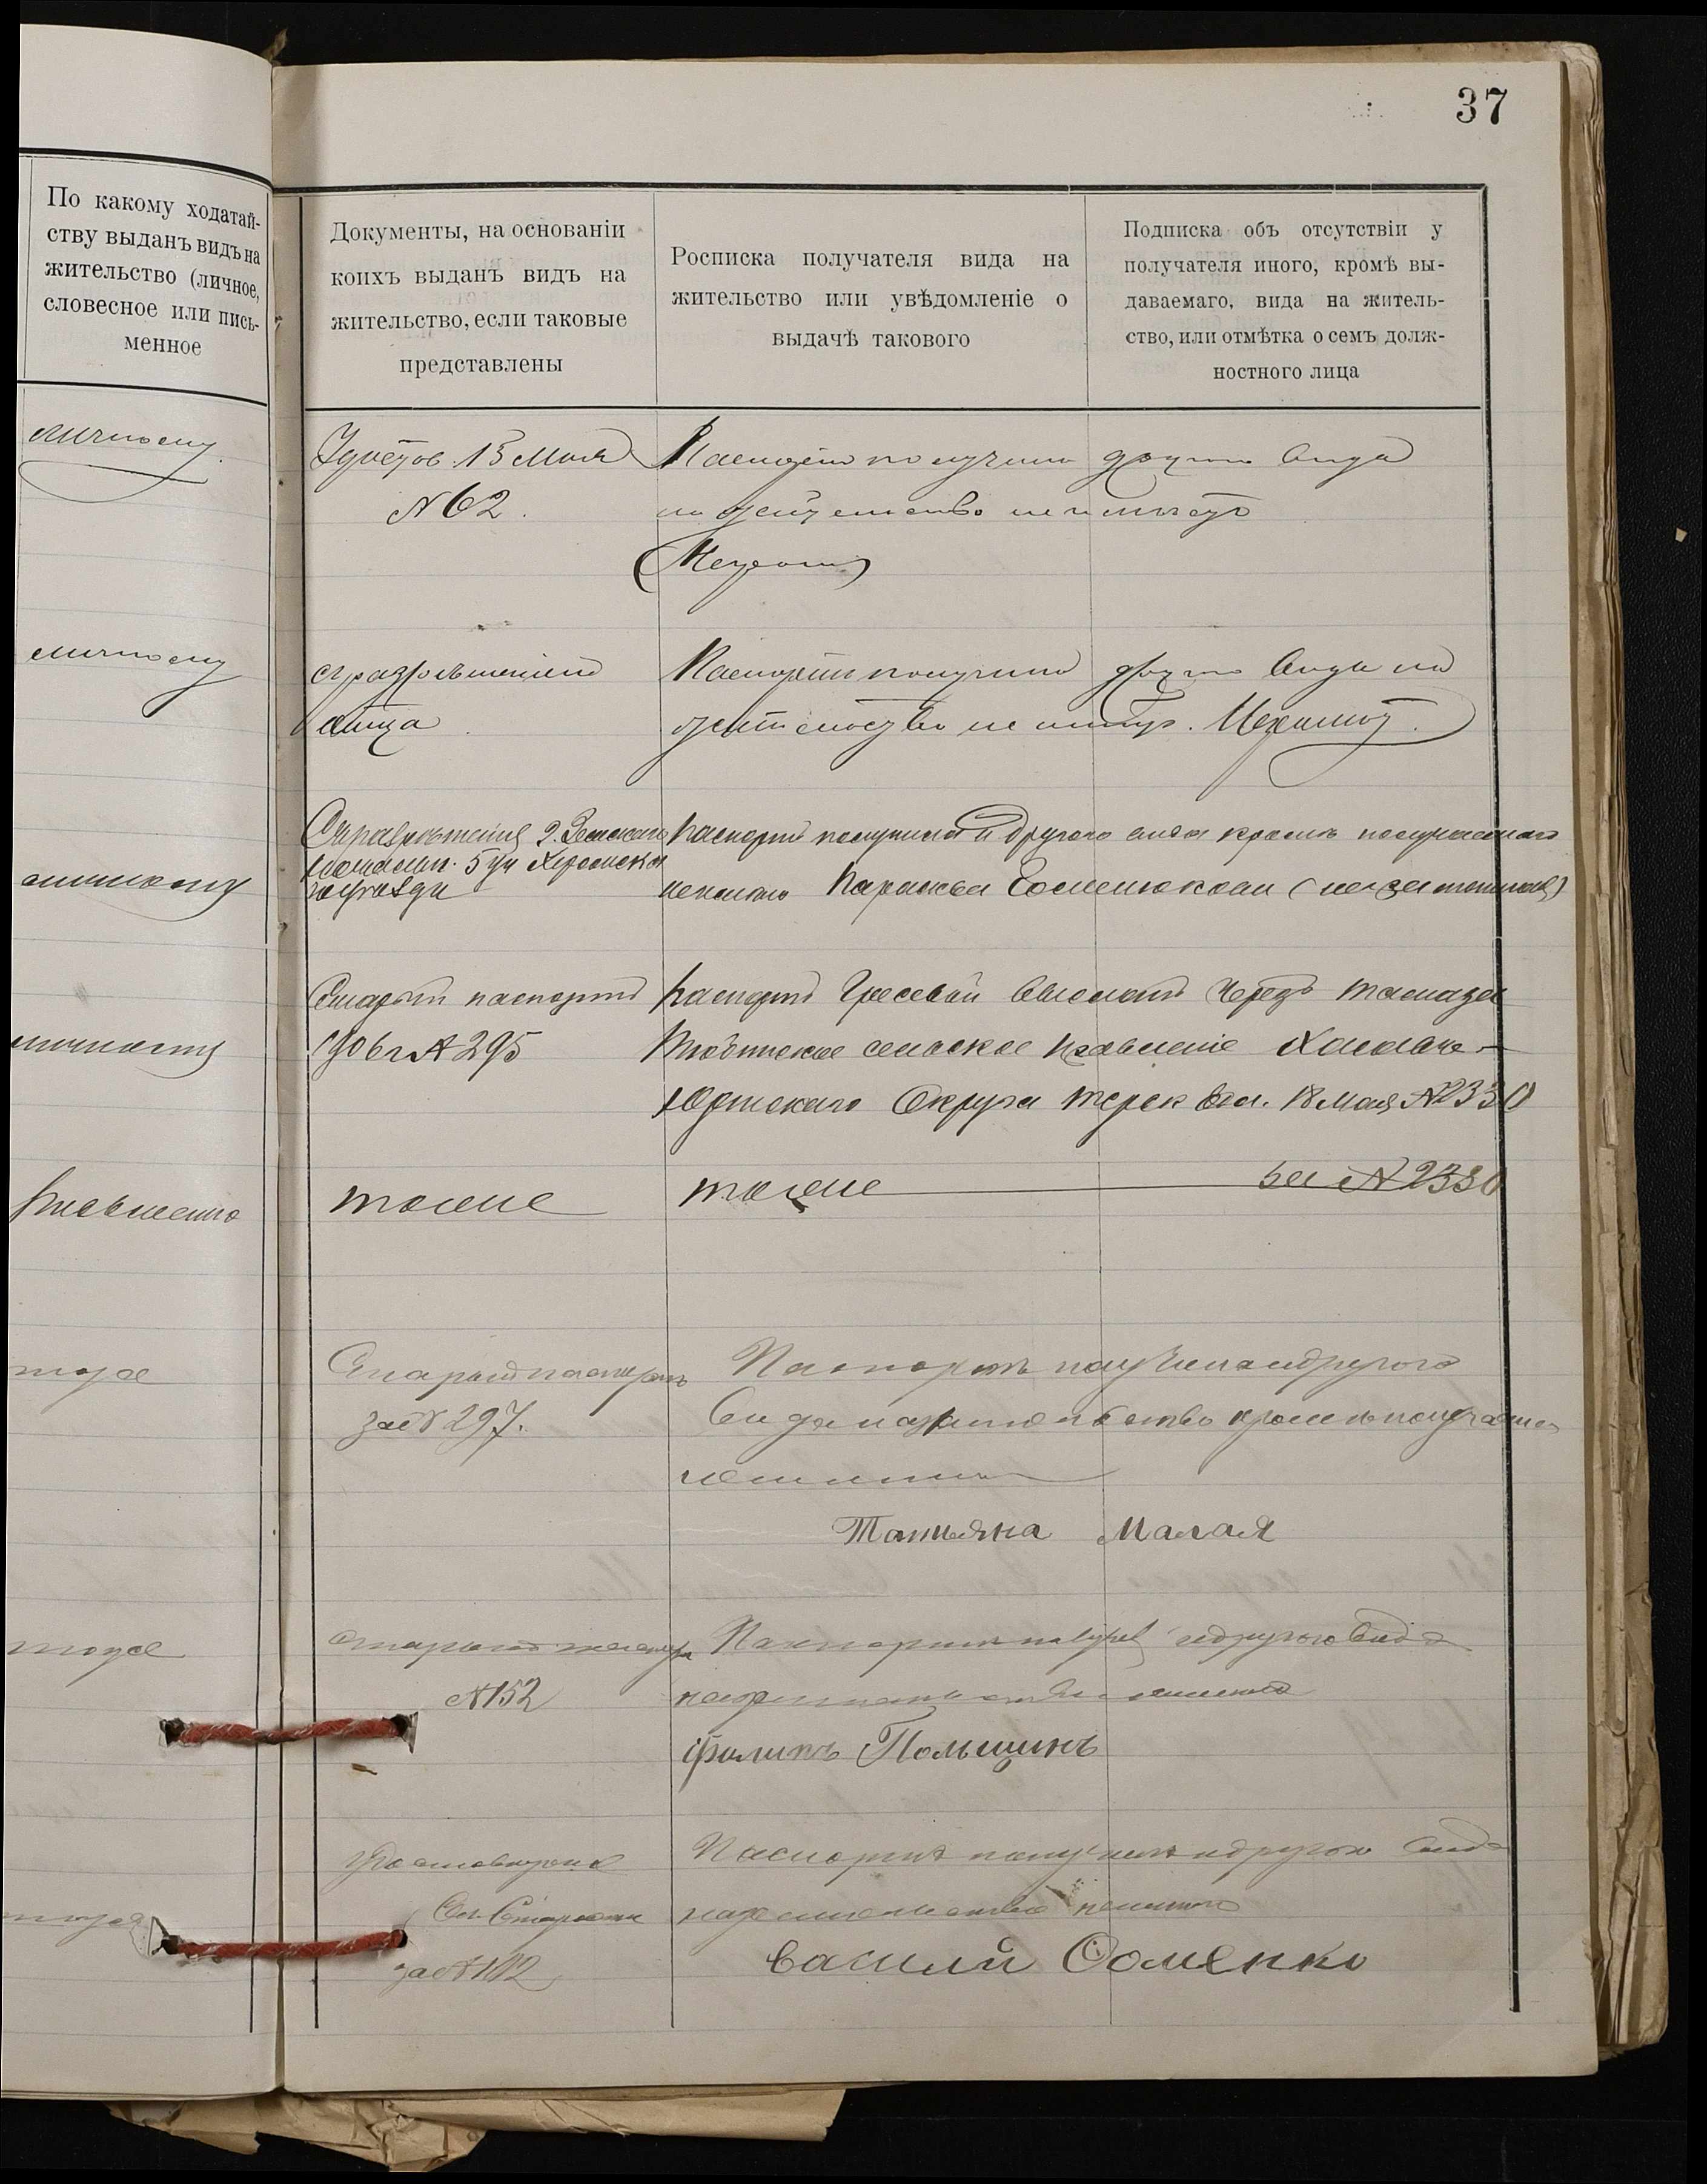 37
По какому ходатай-
ству выданъ видъ на
жительство (личное,
словесное или пись-
менное
Документы, на основаніи
коихъ выданъ видъ на
жительство, если таковые
представлены
Росписка получателя вида на
жительство или увѣдомленіе о
выдачѣ такового
Подписка объ отсутствіи у
получателя иного, кромѣ вы-
даваемаго, вида на житель-
ство, или отмѣтка о семъ долж-
ностного лица
личному
13 Мая
№ 62.
Паспортъ получилъ другого вида
на жительство не имѣетъ
личному
съ разрѣшенія
отца
Паспортъ получилъ другого вида на
жительство не имѣетъ.
личному
Съ разрѣшенія Г. Земскаго
5 уч Херсонскаго
уѣзда
Паспортъ получила и другого вида кромѣ получаемаго
неимѣю Параска
личному
Старый паспортъ
1906 г № 295
Паспортъ высланъ черезъ
сельское правленіе Хасавъ-
Юртскаго Округа Терск Обл. 18 Мая № 2330
письменно
тоже
тоже за № 2330
тоже
Старый паспортъ
за № 297.
Паспортъ получила и другого
вида на жительство кромѣ получаемаго
неимѣю
Татьяна Малая
тоже
Старый паспортъ
№ 152
Паспортъ получ и другого вида
на жительство неимѣю
Филипъ Польщикъ
тоже
Удостовѣреніе
Сел. Старосты
за № 112
Паспортъ получилъ и другого вида
на жительство неимѣю
Василій Соменко